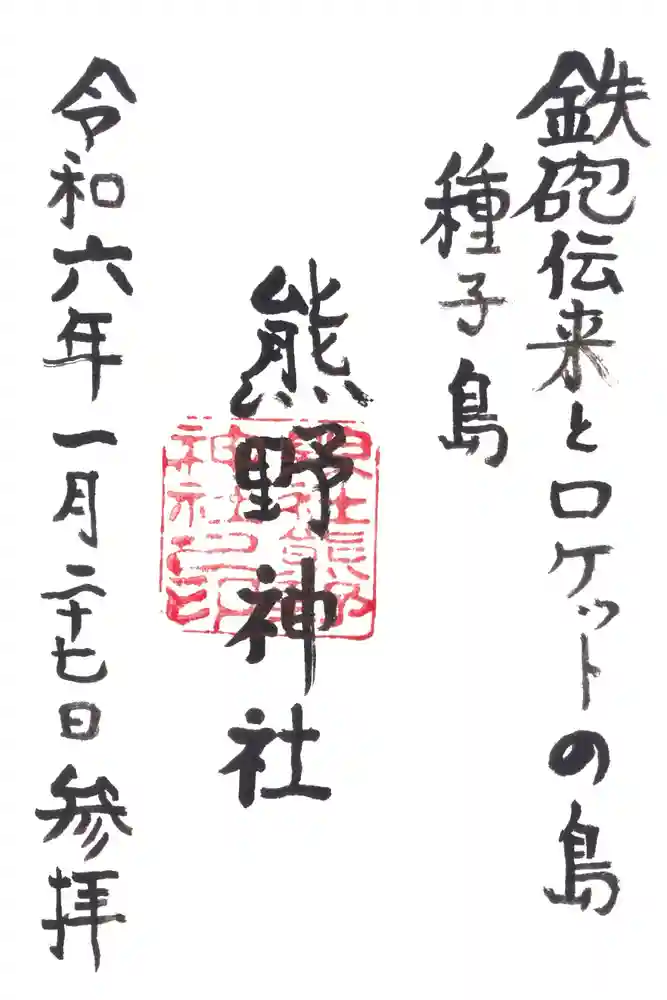 鉄砲伝来とロケットの島
種子島
熊野神社
令和六年一月二十七日参拝